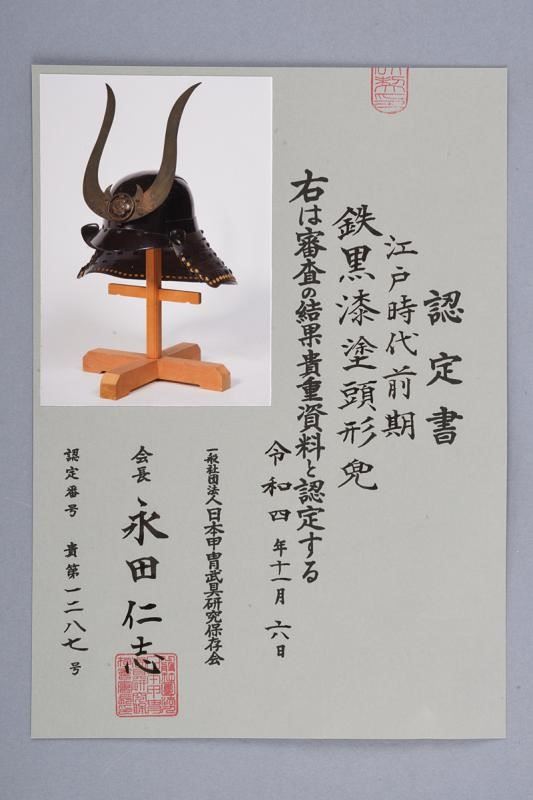 認定書
江戸時代前期
鉄黒漆塗頭形兜
右は審査の結果貴重資料と認定する
令和四年十一月六日
一般社団法人日本甲冑武具研究保存会
会長 永田仁志
認定番号 貴第一二八七号